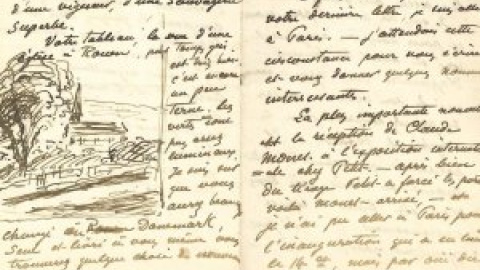 d'une vigueur, d'une sauvagerie
superbe.
Votre tableau, la vue d'une
église à Rouen,
c'est encore
un peu
terne, les
verts sont
pas assez
lumineux.
Je suis sur
que vous
aurez beau
changé de Rouen Danemark,
seul et livré à vous même vous
quelque chose de nouveau
votre dernière lettre je suis allé
à Paris. — j'attendais cette
circonstance pour vous écrire
et vous donner quelques nouvelles
intéressantes.
La plus importante nouvelle
est la réception de Claude
Monet à l'exposition internatio
-nale chez Petit. — après bien
du tirage Petit a forcé la porte
voilà Monet arrivé, —
je n'ai pu aller à Paris pour
l'inauguration qui a eu lieu
le mais par